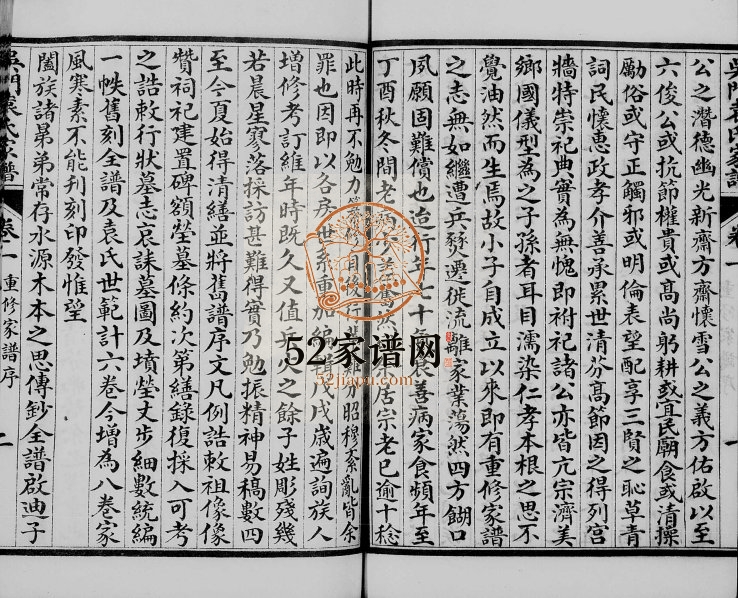 公之潛德幽光新齋方齋懷雪公之義方佑啟以至
六俊公或抗節權貴或高尚躬耕或宜民廟食或清操
勵俗或守正觸邪或明倫表望配享三賢之恥草青
詞民懷惠政孝介善承累世清芬高節因之得列宮
牆特崇祀典實為無愧即祔祀諸公亦皆亢宗濟美
鄉國儀型為之子孫者耳目濡染仁孝本根之思不
覺油然而生焉故小子自成立以來即有重修家譜
之志無如繼遭兵燹遷徙流離家業蕩然四方餬口
夙願固難償也迨行年七十衰善病家食頻年至
丁酉秋冬間老居宗老已逾十稔
此時再不勉力昭穆紊亂皆余
罪也因即以各房世系重加編輯戊戌歲遍詢族人
增修考訂維年時既久又值兵火之餘子姓彫殘幾
若晨星寥落採訪甚難得實乃勉振精神易稿數四
至今夏始得清繕並將舊譜序文凡例誥敕祖像像
贊祠祀建置碑額塋墓條約次第繕錄復採入可考
之誥敕行狀墓志哀誄墓圖及墳塋丈步細數統編
一帙舊刻全譜及袁氏世範計六卷今增為八卷家
風寒素不能刋刻印發惟望
闔族諸昴弟常存水源木本之思傳鈔全譜啟迪子
吳門袁氏家譜 卷一 重修家譜序 二
52家谱网
52jiapu.com